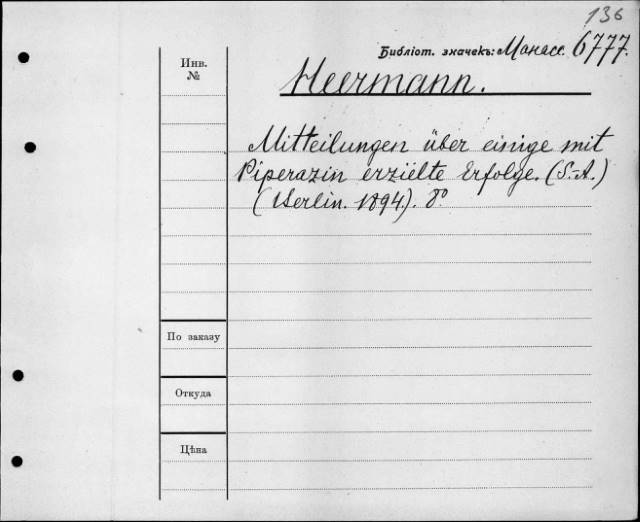 136
Библіот. значекъ: Манасс. 6777.
Инв.
№
Heermann.
Mitteilungen über einige mit
Piperazin erzielte Erfolge. (S.-A.)
(Berlin. 1894). 8°
По заказу
Откуда
Цѣна